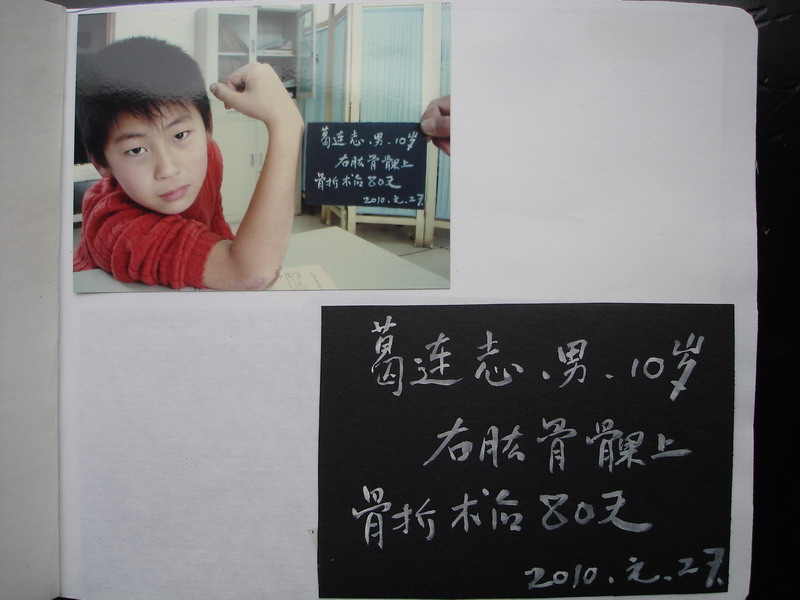 葛连志、男、10岁
右肱骨髁上
骨折术后80天
2010.元.27.
葛连志、男、10岁
右肱骨髁上
骨折术后80天
2010.元.27.